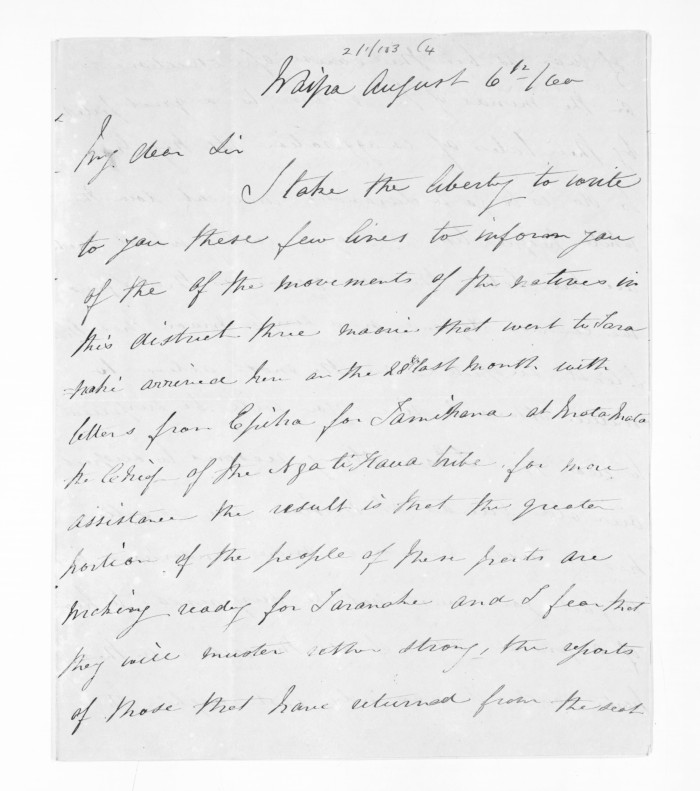 2/1/183 C4
Waipa August 6th/60
My dear Sir
I take the liberty to write
to you these few lines to inform you
of the of the movements of the natives in
this district three maorie that went to Tara
naki arrived here on the 28th last month with
letters from Epiha for Tamihana at MataMata
he Chief of the Ngati Haua tribe for more
assistance the result is that the greater
portion of the people of these parts are
making ready for Taranake and I fear that
they will muster rather strong, the reports
of those that have returned from the seat